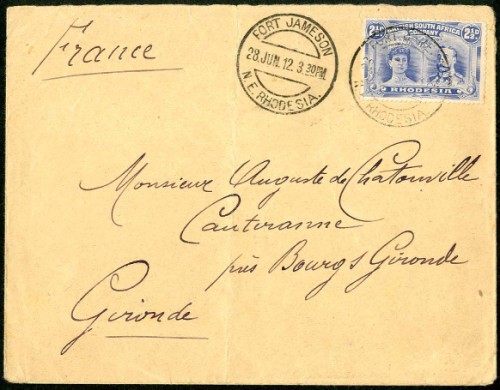 France
FORT JAMESON
28.JUN.12 3.30PM.
N.E. RHODESIA.
2½d BRITISH SOUTH AFRICA 2½d
COMPANY.
RHODESIA
RHODESIA.
Monsieur Auguste de Chatonville
Canteranne
près Bourg s Gironde
Gironde